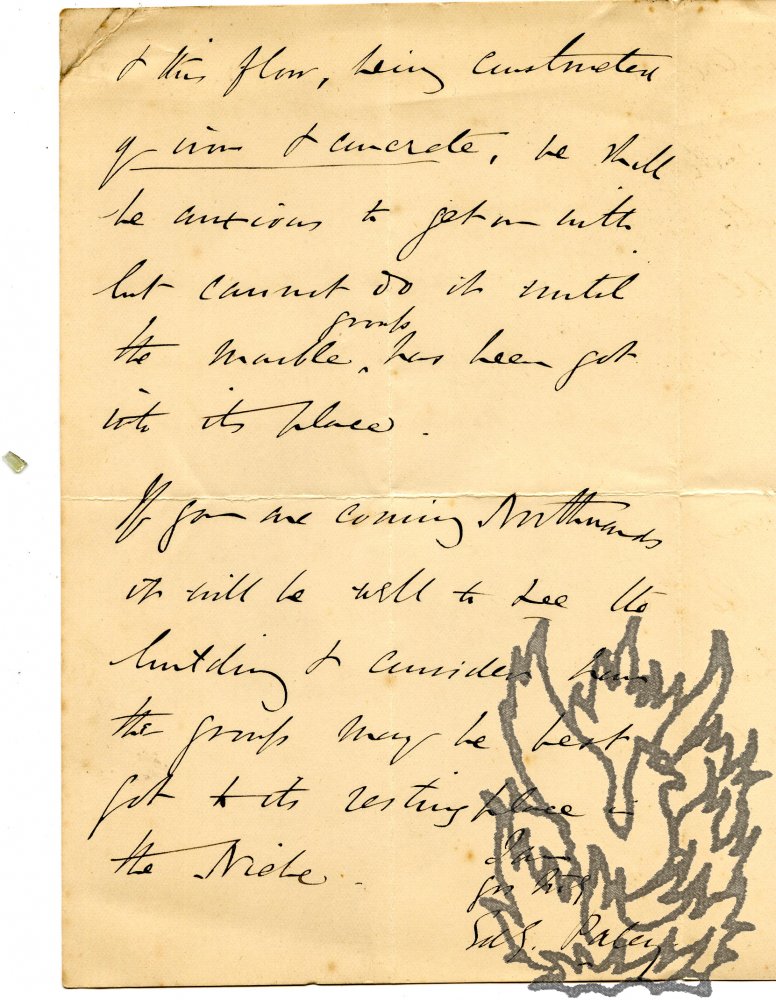 & this floor, being constructed
of iron & concrete, we shall
be anxious to get on with
but cannot do it until
group
the marble has been got
into its place.
If you are coming Northwards
it will be well to see the
building & consider how
the group may be best
got to its resting place in
the Niche.
I am
Ed. G. Paley